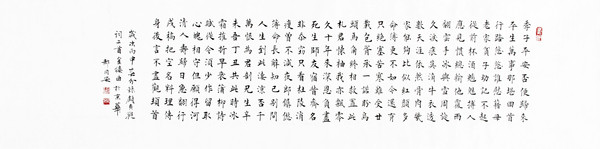 季子平安否便歸來
平生萬事那堪回首
行路悠悠誰慰藉母
老家貧子幼記不起
從前杯酒魑魅搏人
應見慣總輸他覆雨
翻雲手冰與雪周旋
久淚痕莫滴牛衣透
數天涯依然骨肉幾
家能夠比似紅顏多
命薄更不如今還有
只絕塞苦寒難受廿
載包胥承一諾盼烏
頭馬角終相救置此
札君懷袖我亦飄零
久十年來深恩負盡
死生師友宿昔齊名
非忝竊只看杜陵消
瘦曾不減夜郎僝僽
薄命長辭知己別問
人生到此淒涼否千
萬恨為君剖兄生辛
未吾丁丑共此時冰
霜摧折早衰蒲柳詩
賦從今須少作留取
心魄相守但願得河
清人壽歸日急翻行
戍稿把空名料理傳
身後言不盡觀頓首
歲次丙申錄顧貞觀
詞二首金縷曲於京華